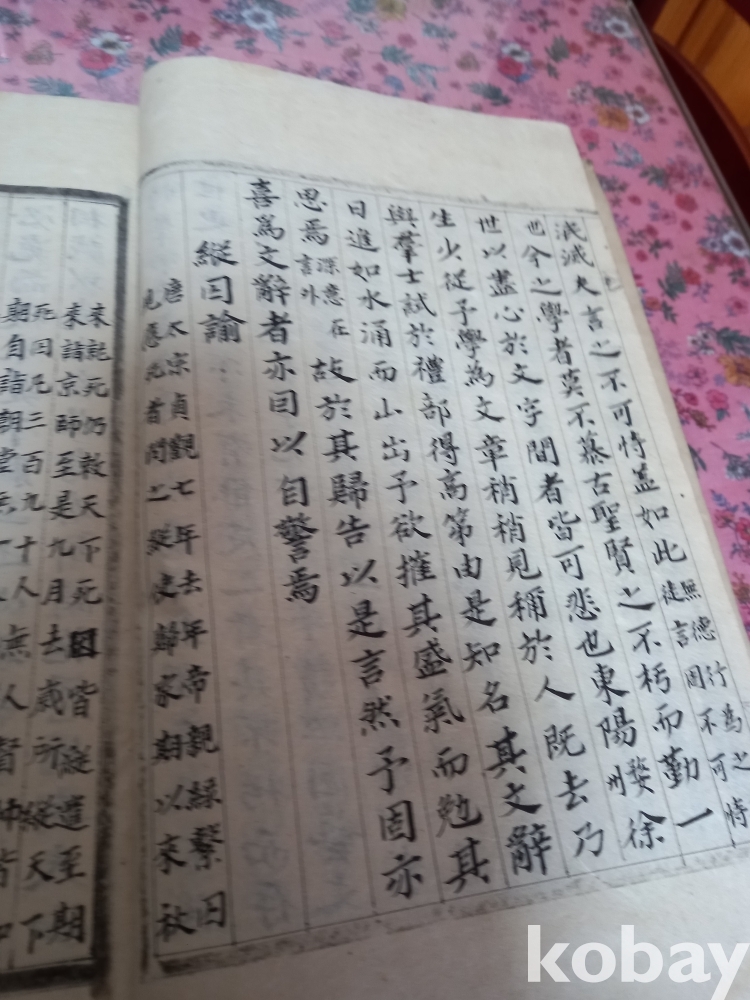 泯滅夫言之不可恃盖如此無德行為之徒言固不可恃
也今之學者莫不慕古聖賢之不朽而勤一
世以盡心於文字間者皆可悲也東陽婺州徐
生少從予學為文章稍稍見稱於人既去乃
與羣士試於禮部得高第由是知名其文辭
日進如水涌而山出予欲摧其盛氣而勉其
思焉深意在言外故於其歸告以是言然予固亦
喜為文辭者亦因以自警焉
縱囚論
唐太宗貞觀七年去年帝親綠繫囚
見應死者閔之縱使歸家期以來秋
來就死仍敕天下死囚皆縱遣至期
來詣京師至是九月去歲所縱天下
死囚凡三百九十人無人督帥皆
期自詣朝堂無一人
kobay